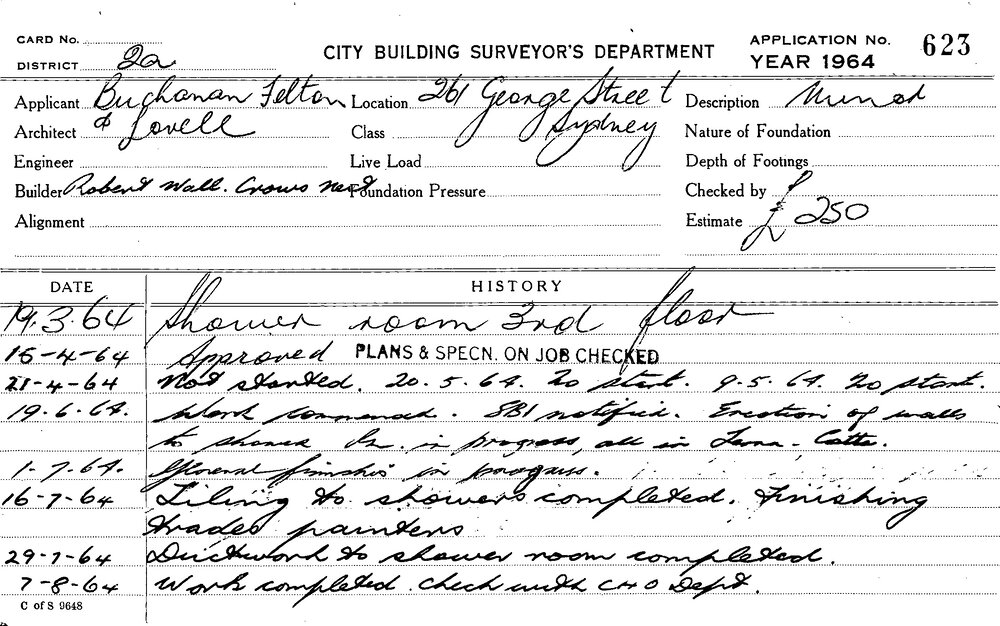 CARD No.
DISTRICT 2a
CITY BUILDING SURVEYOR'S DEPARTMENT
APPLICATION No. 623
YEAR 1964
Applicant Buchanan Felton & Lovell
Location 261 George Street Sydney
Description Minor
Architect
Class
Nature of Foundation
Engineer
Live Load
Depth of Footings
Builder Robert Wall. Crows Nest
Foundation Pressure
Checked by
Alignment
Estimate £ 250
DATE HISTORY
19.3.64 Shower room 3rd floor
15-4-64 Approved PLANS & SPECN. ON JOB CHECKED
21-4-64 Not started. 20.5.64. No start. 9.5.64. No start.
19.6.64. Work commenced. SBI notified. Erection of walls
to shower in progress, all in Terra-Cotta.
1-7.64. General finishes in progress.
16-7-64 Tiling to showers completed. Finishing
trades painters
29-7-64 Ductword to shower room completed.
7-8-64 Work completed. Check with CHO Dept.
C of S 9648